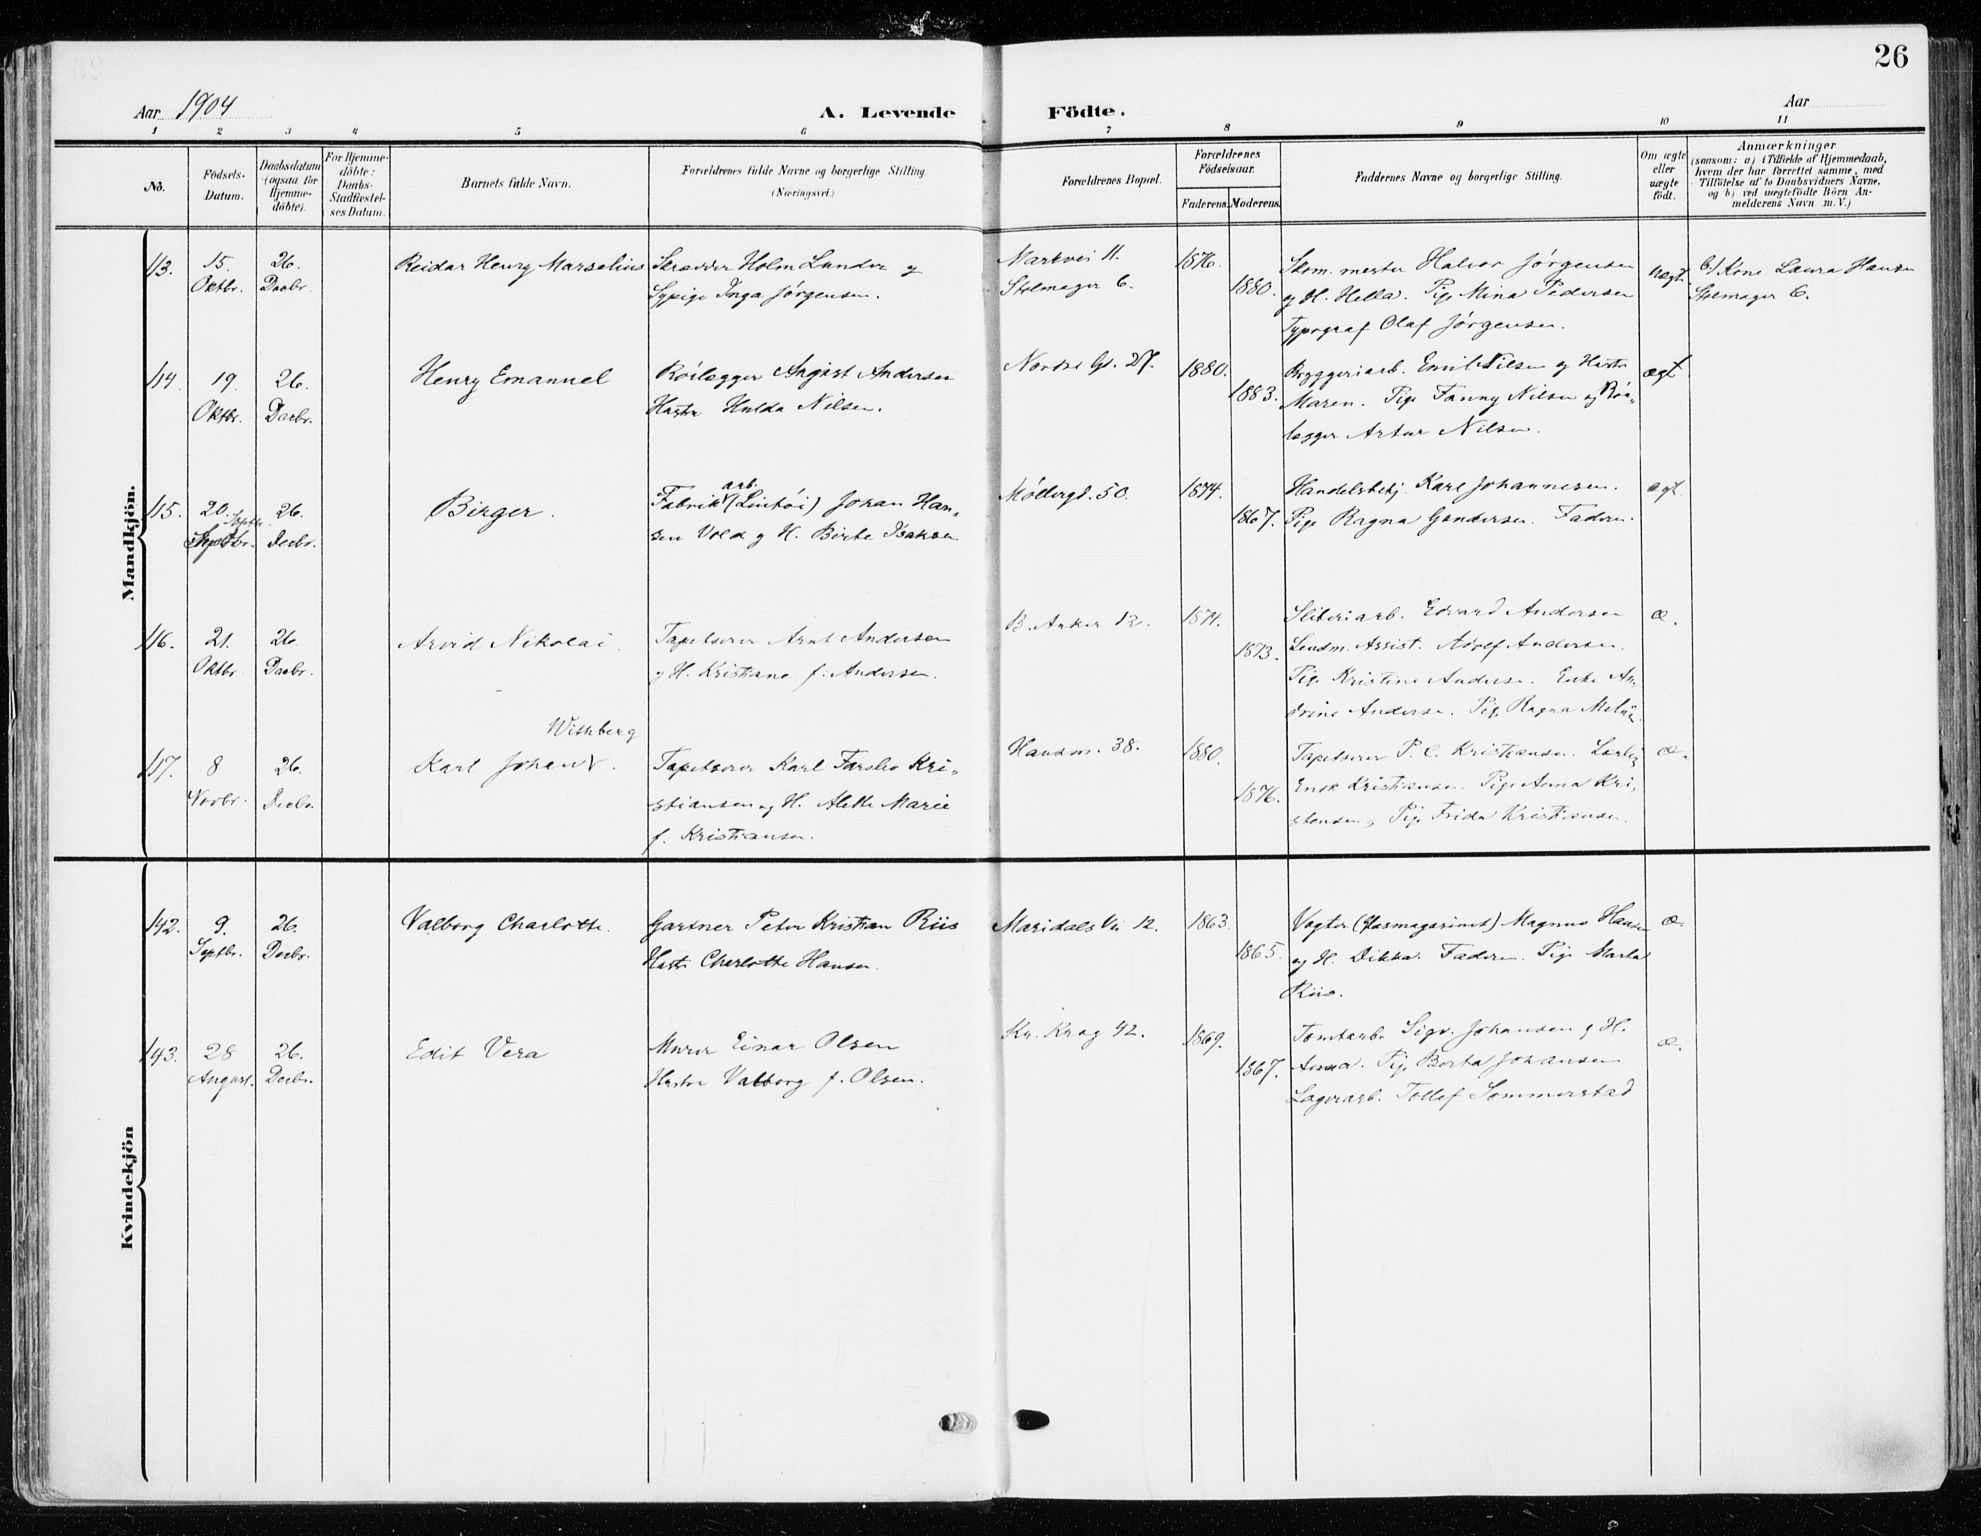 26
Aar 1904
A. Levende Födte.
Aar
1 2 3 4 5 6 7 8 9 10 11
No.
Födsels-Datum.
Daabsdatum (ogsaa for Hjemme-döbte).
For Hjemme-döbte: Daabs-Stadfæstel-ses Datum.
Barnets fulde Navn.
Forældrenes fulde Navne og borgerlige Stilling.
(Næringsvei.)
Forældrenes Bopæl.
Forældrenes Födselsaar.
Faderens. Moderens.
Faddernes Navne og borgerlige Stilling.
Om ægte eller uægte födt.
Anmærkninger
(saasom: a) i Tilfælde af Hjemmedaab,
hvem der har forrettet samme, med
Tilföielse af to Daabsvidners Navne,
og b) ved uægtefödte Börn An-
melderens Navn m. V.)
Mandkjön.
113. 15. Oktbr. 26. Decbr. Reidar Henry Marselius
Skrædder Holm Lunder og
Sypige Inga Jørgensen.
Markvei 11.
Stolmager 6.
1876. 1880.
Skom. mester Halvor Jørgensen
og H. Hella. Pige Mina Pedersen
Typograf Olaf Jørgensen.
uægt
b) Kone Laura Hansen
Stolmager 6.
114. 19. Oktbr. 26. Decbr. Henry Emanuel
Rørlægger August Andersen
Hustru Hulda Nilsen.
Nordre Gd. 27.
1880. 1883.
Bryggeriarb. Emil Nilsen og Hustr
Maren. Pige Fanny Nilsen og Rør-
lægger Artur Nilsen.
ægt
115. 20. Septbr. 26. Decbr. Birger.
Fabrikarb. (Lintøi) Johan Han-
sen Vold og H. Birte Isaksen
Møllergd. 50.
1874. 1867.
Handelsbetj. Karl Johannesen.
Pige Ragna Gundersen. Faderen.
ægt.
116. 21. Oktbr. 26. Decbr. Arvid Nikolai.
Tapetserer Arnt Andersen
og H. Kristiane f. Andersen.
B. Anker 12.
1874. 1873.
Sliberiarb. Edvard Andersen
Lendm. Assist. Adolf Andersen.
Pige Kristine Andersen. Enke An-
drine Andersen. Pige Ragna
æ.
117. 8 Novbr. 26. Decbr. Karl Johan Withberg.
Tapetserer Karl Kri-
stiansen og H. Alette Marie
f. Kristiansen.
Hausm. 38.
1880. 1876.
Tapetserer P. C. Kristiansen.
Enok Kristiansen. Pige Anna Kri-
stensen, Pige Frida Kristiansen.
æ.
Kvindekjön
142. 9. Septbr. 26. Decbr. Valborg Charlotte.
Gartner Peter Kristian Riis
Hustr Charlotte Hansen.
Maridals Vei 12.
1863. 1865.
Vogter (Gasmagasinet) Magnus Hansen
og H. Dikka. Faderen. Pige Marta
Riis.
æ.
143. 28 August. 26. Decbr. Edit Vera
Murer Einar Olsen
Hustru Valborg f. Olsen.
Kr. Krag 42.
1869. 1867.
Tomtarb. Sigv. Johansen og H.
Anna. Pige Borta Johansen
Lagerarb. Tollef Sommerstad
æ.